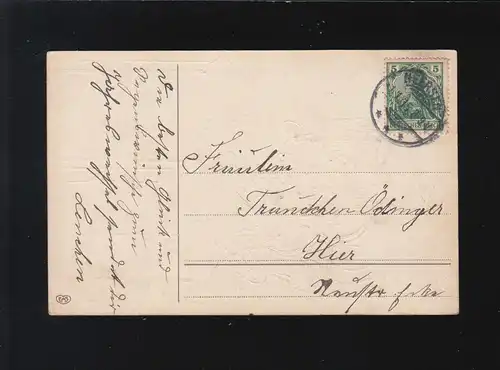 Die besten Glück und
Segenswünsche zum
Jahreswechsel sendet dir
Lenchen
5 5
Fräulein
Trundchen Ödinger
Hier
Neustr Ecke